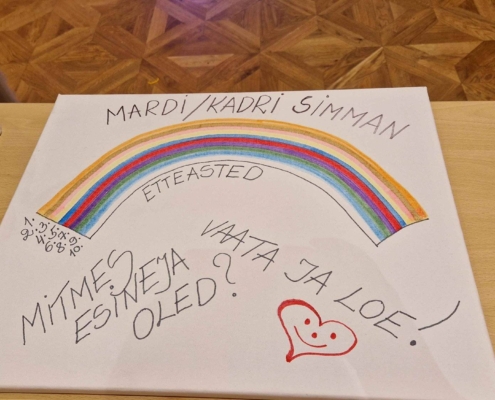 MARDI/KADRI SIMMAN
ETTEASTED
1. 3. 5. 7. 9.
2. 4. 6. 8. 10.
MITMES
ESINEJA
OLED?
VAATA JA LOE!